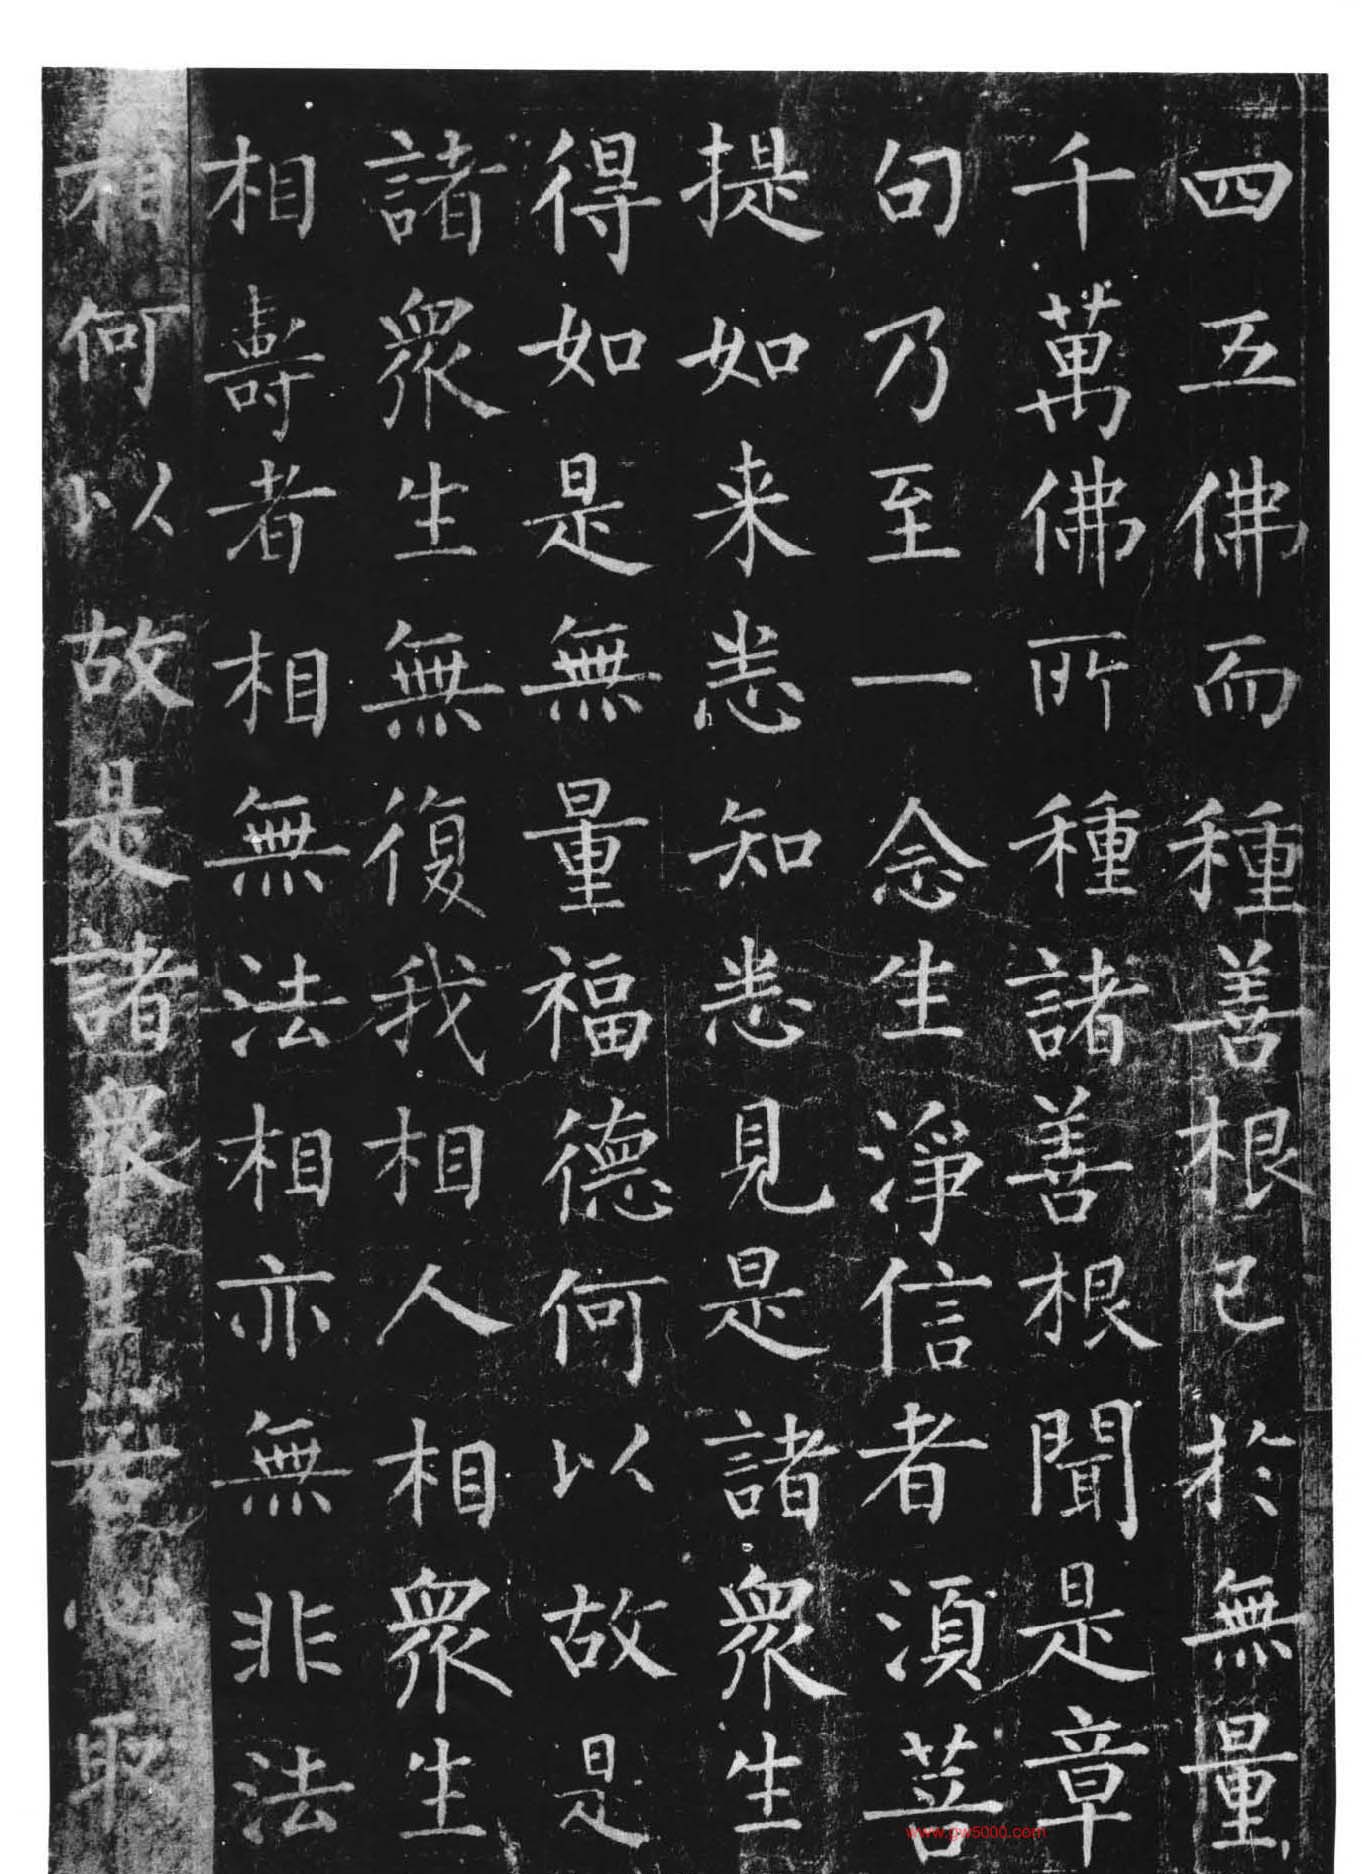 四五佛而種善根已於無量
千萬佛所種諸善根聞是章
句乃至一念生淨信者須菩
提如来悉知悉見是諸衆生
得如是無量福德何以故是
諸衆生無復我相人相衆生
相壽者相無法相亦無非法
相何以故是諸衆生若心取
www.gw5000.com